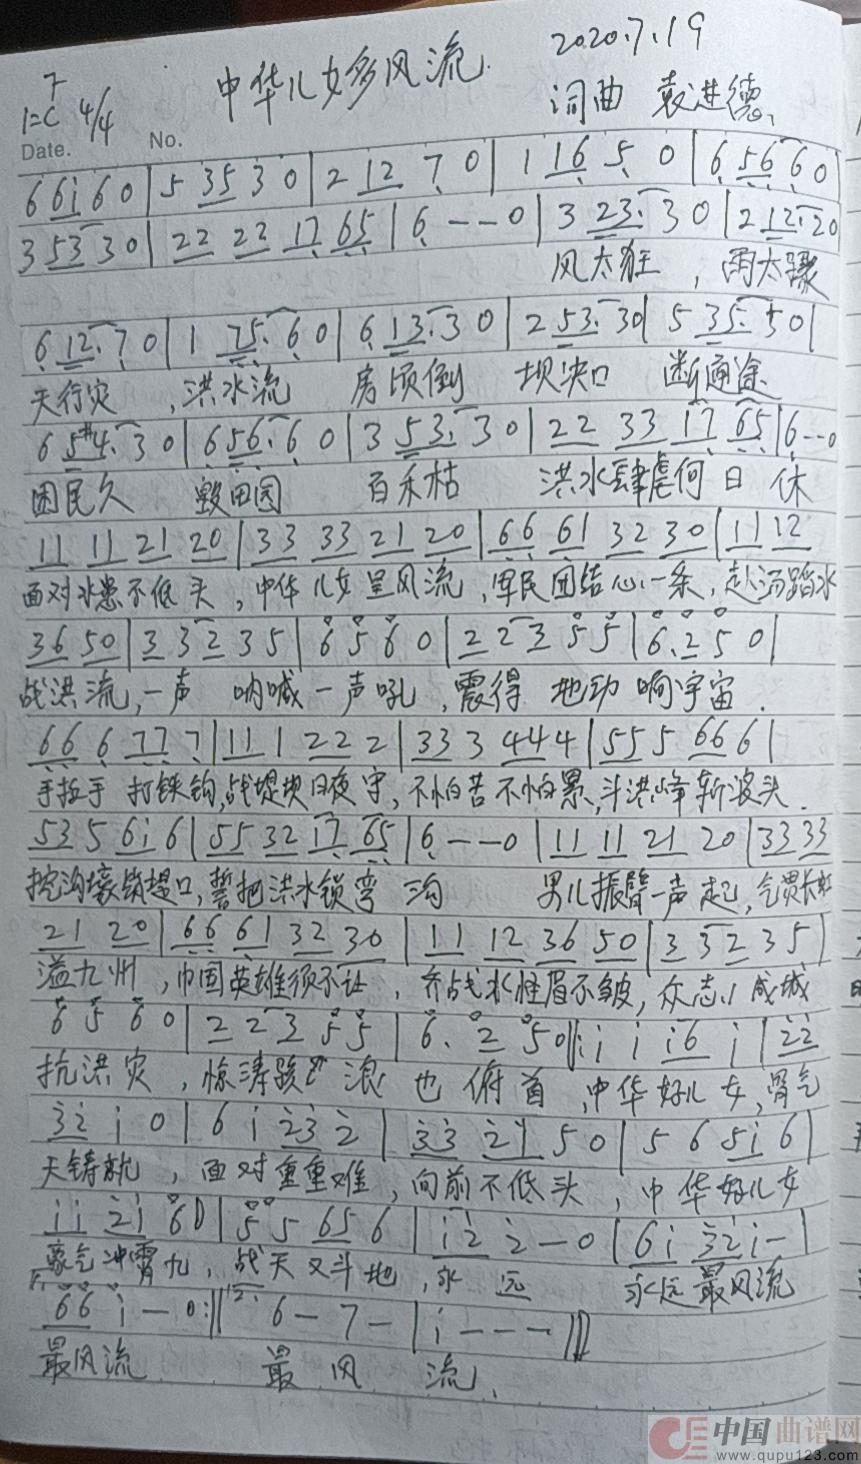 中华儿女多风流. 2020.7.19
1=C 4/4 词曲 袁进德
Date. No.
6 6i 6 0 | 5 35 3 0 | 2 12 7 0 | 1 16 5 0 | 6 56 6 0
3 53 3 0 | 22 22 17 65 | 6 - - 0 | 3 23. 3 0 | 2 12. 2 0
风太狂 , 雨太骤
6 12. 7 0 | 1 75. 6 0 | 6 13. 3 0 | 2 53. 3 0 | 5 35. 5 0 |
天行灾 , 洪水流 房倾倒 坝决口 断通途
6 5#4. 3 0 | 6 56. 6 0 | 3 53. 3 0 | 22 33 17 65 | 6 - - 0
困民久 毁田园 百禾枯 洪水肆虐何日休
11 11 21 20 | 33 33 21 20 | 66 61 32 30 | 11 12
面对水患不低头 , 中华儿女呈风流 , 军民团结心一条 , 赴汤蹈水
36 50 | 3 3 2 3 5 | 6 5 6 0 | 2 2 3 5 5 | 6. 2 5 0 |
战洪流 , 一声呐喊一声吼 , 震得地动啊宇宙 .
66 6 77 7 | 11 1 22 2 | 33 3 44 4 | 55 5 66 6 |
手拉手 打铁钩 , 战堤坝日夜守 , 不怕苦不怕累 , 斗洪峰斩波头 .
53 5 6i 6 | 55 32 17 65 | 6 - - - 0 | 11 11 21 20 | 33 33
挖沟壕锁堤口 , 誓把洪水锁弯沟 男儿振臂一声起 , 气贯长虹
21 20 | 66 61 32 30 | 11 12 36 50 | 3 3 2 3 5 |
溢九州 , 巾国英雄须不让 , 齐战水怪眉不皱 , 众志成城
6 5 6 0 | 2 2 3 5 5 | 6. 2 5 0 ‖: i i i6 i | 22
抗洪灾 , 惊涛骇浪也俯首 , 中华好儿女 , 骨气
32 i 0 | 6 i 23 2 | 33 21 5 0 | 5 6 5i 6 |
天铸就 , 面对重重难 , 向前不低头 , 中华好儿女
ii 2i 60 | 5 5 65 6 | i2 2 - 0 | 6i 32 i - |
豪气冲霄九 , 战天又斗地 , 永远 永远最风流
66 i - 0 :‖ 2. 6 - 7 - | i - - - ‖
最风流 最风流 .
中国曲谱网
www.qupu123.com